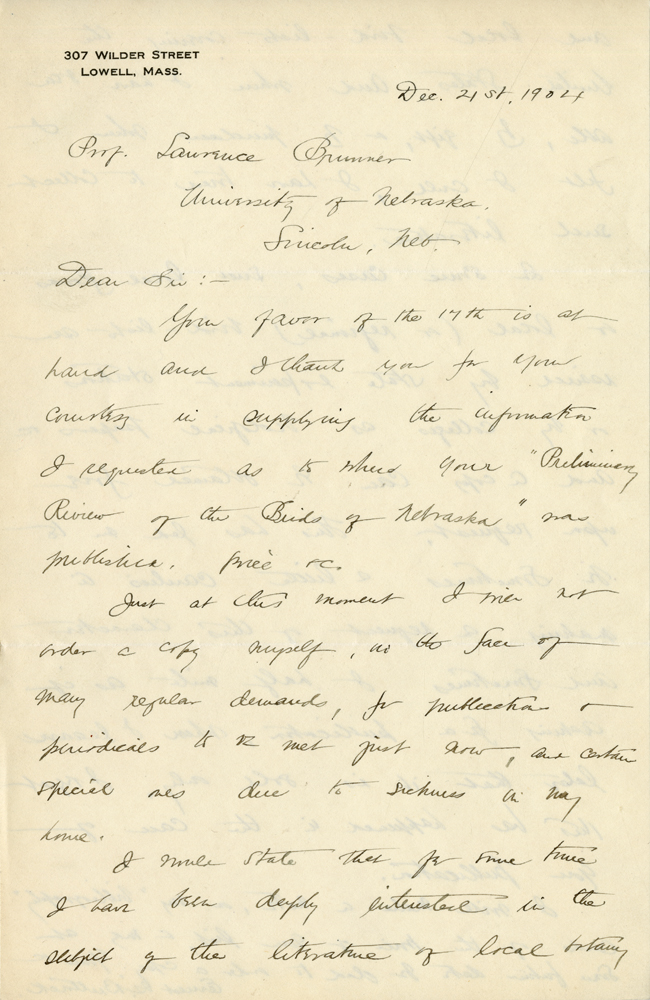 307 WILDER STREET
LOWELL, MASS.
Dec. 21st, 1904
Prof. Lawrence Bruner
University of Nebraska,
Lincoln, Neb.
Dear Sir:—
Your favor of the 17th is at
hand and I thank you for your
courtesy in supplying the information
I requested as to where your "Preliminary
Review of the Birds of Nebraska" was
published, price &c.
Just at this moment I will not
order a copy myself, in the face of
many regular demands, for publications or
periodicals to be met just now, and certain
special ones due to sickness in my
home.
I would state that for some time
I have been deeply interested in the
subject of the literature of local botany